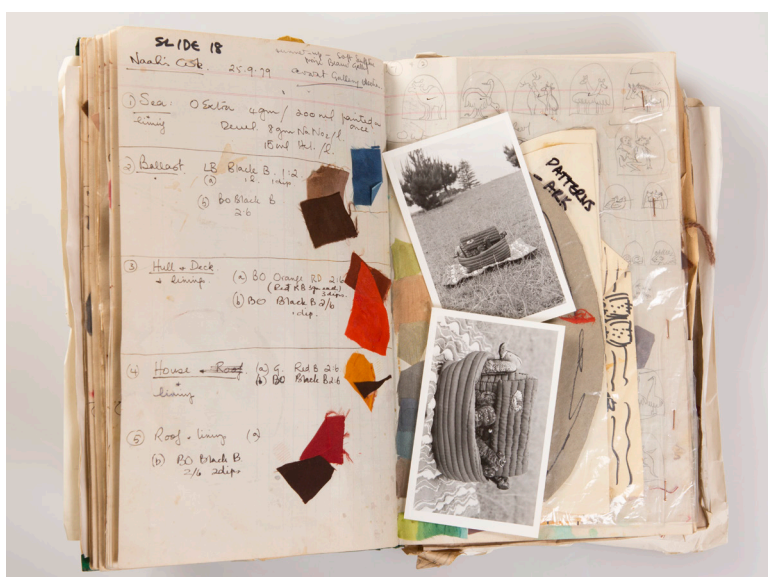 SLIDE 18
Noah's Ark. 25.9.79
① Sea:
lining
4gm / 200ml painted on
once
8gm NaNo2/l.
15ml /l.
② Ballast LB Black B. 1:2
(a) 1 dip
(b) BO Black B
2:6
③ Hull + Deck
+ lining
(a) BO Orange RD 2:6
3 dips.
(b) BO Black B 2/6
1 dip.
④ House + Roof
lining
(a) G. Red B 2:6
(b) BO Black B 2:6
⑤ Roof + lining (a)
(b) BO Black B.
2/6 2 dips
PATTERNS
- ARK